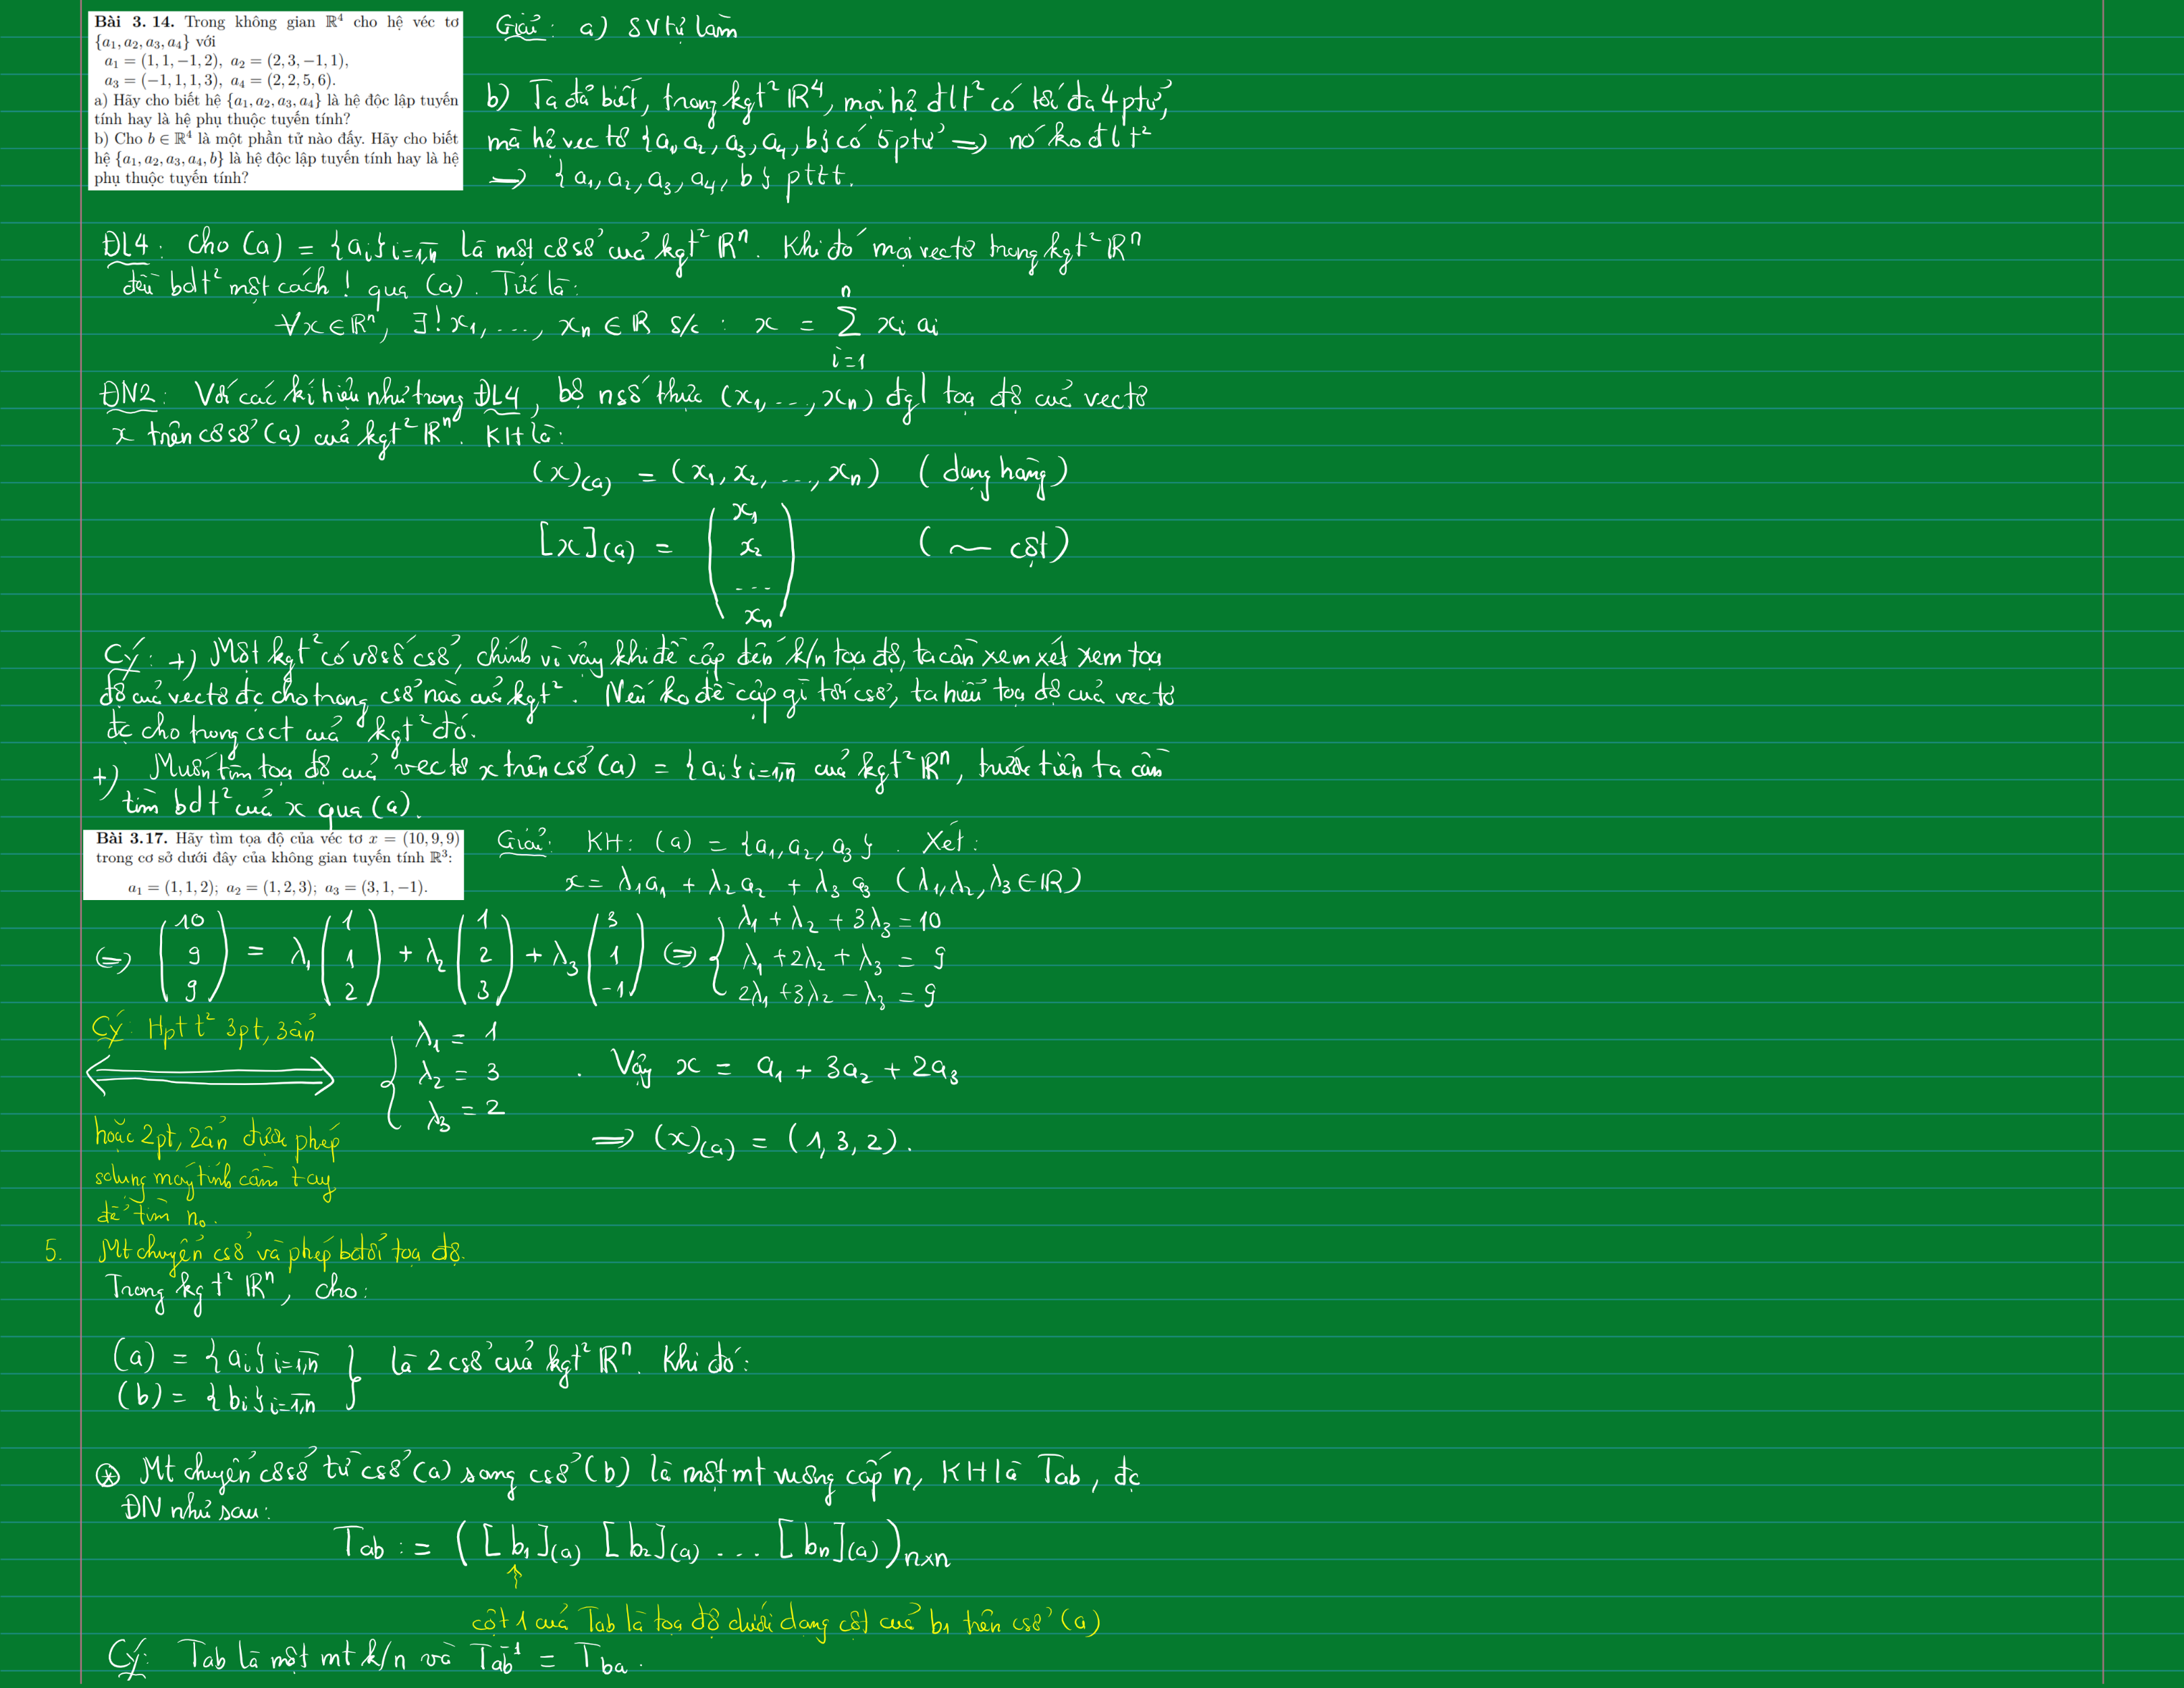 Bài 3. 14. Trong không gian ℝ⁴ cho hệ véc tơ
{a₁, a₂, a₃, a₄} với
a₁ = (1, 1, −1, 2), a₂ = (2, 3, −1, 1),
a₃ = (−1, 1, 1, 3), a₄ = (2, 2, 5, 6).
a) Hãy cho biết hệ {a₁, a₂, a₃, a₄} là hệ độc lập tuyến
tính hay là hệ phụ thuộc tuyến tính?
b) Cho b ∈ ℝ⁴ là một phần tử nào đấy. Hãy cho biết
hệ {a₁, a₂, a₃, a₄, b} là hệ độc lập tuyến tính hay là hệ
phụ thuộc tuyến tính?
Giải: a) SV tự làm
b) Ta đã biết, trong kgt² ℝ⁴, mọi hệ đlt² có tối đa 4 ptử,
mà hệ vectơ {a₁, a₂, a₃, a₄, b} có 5 ptử => nó ko đlt²
→ {a₁, a₂, a₃, a₄, b} pttt.
ĐL4: Cho (a) = {aᵢ} i=1,n là một cơ sở của kgt² ℝⁿ. Khi đó mọi vectơ trong kgt² ℝⁿ
đều bdt² một cách ! qua (a). Tức là:
∀x ∈ ℝⁿ, ∃! x₁, ..., xₙ ∈ ℝ s/c : x = ∑ⁿᵢ₌₁ xᵢ aᵢ
ĐN2: Với các kí hiệu như trong ĐL4, bộ n số thực (x₁, ..., xₙ) đgl toạ độ của vectơ
x trên cơ sở (a) của kgt² ℝⁿ. KH là:
(x)₍ₐ₎ = (x₁, x₂, ..., xₙ) (dạng hàng)
[x]₍ₐ₎ = (x₁ x₂ ... xₙ) (~ cột)
CÝ: +) Một kgt² có vô số csở, chính vì vậy khi đề cập đến k/n toạ độ, ta cần xem xét xem toạ
độ của vectơ đc cho trong csở nào của kgt². Nếu ko đề cập gì tới csở, ta hiểu toạ độ của vectơ
đc cho trong csct của kgt² đó.
+) Muốn tìm toạ độ của vectơ x trên csở (a) = {aᵢ} i=1,n của kgt² ℝⁿ, trước tiên ta cần
tìm bdt² của x qua (a).
Bài 3.17. Hãy tìm tọa độ của véc tơ x = (10, 9, 9)
trong cơ sở dưới đây của không gian tuyến tính ℝ³:
a₁ = (1, 1, 2); a₂ = (1, 2, 3); a₃ = (3, 1, −1).
Giải: KH: (a) = {a₁, a₂, a₃}. Xét:
x = λ₁a₁ + λ₂a₂ + λ₃a₃ (λ₁, λ₂, λ₃ ∈ ℝ)
(=) (10 9 9) = λ₁ (1 1 2) + λ₂ (1 2 3) + λ₃ (3 1 -1) (=) { λ₁ + λ₂ + 3λ₃ = 10
λ₁ + 2λ₂ + λ₃ = 9
2λ₁ + 3λ₂ − λ₃ = 9
CÝ: Hptt² 3pt, 3ẩn
hoặc 2pt, 2ẩn được phép
sdụng máy tính cầm tay
để tìm no.
⟺ { λ₁ = 1
λ₂ = 3
λ₃ = 2
. Vậy x = a₁ + 3a₂ + 2a₃
=> (x)₍ₐ₎ = (1, 3, 2).
5. Mt chuyển csở và phép bđổi toạ độ.
Trong kgt² ℝⁿ, cho:
(a) = {aᵢ} i=1,n
(b) = {bᵢ} i=1,n
} là 2 csở của kgt² ℝⁿ. Khi đó:
⊛ Mt chuyển cơ sở từ csở (a) sang csở (b) là một mt vuông cấp n, KH là Tab, đc
ĐN như sau:
Tab := ([b₁]₍ₐ₎ [b₂]₍ₐ₎ ... [bₙ]₍ₐ₎)ₙₓₙ
↑
cột 1 của Tab là toạ độ dưới dạng cột của b₁ trên csở (a)
CÝ: Tab là một mt k/n và Tab⁻¹ = Tba.